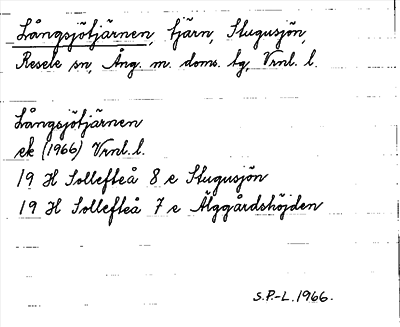 Långsjötjärnen, tjärn, Stugusjön,
Resele sn, Ång. m. doms. tg, Vrnl. l.
Långsjötjärnen
ek (1966) Vrnl. l.
19 H Sollefteå 8 e Stugusjön
19 H Sollefteå 7 e Älggårdshöjden
S.P.-L. 1966.